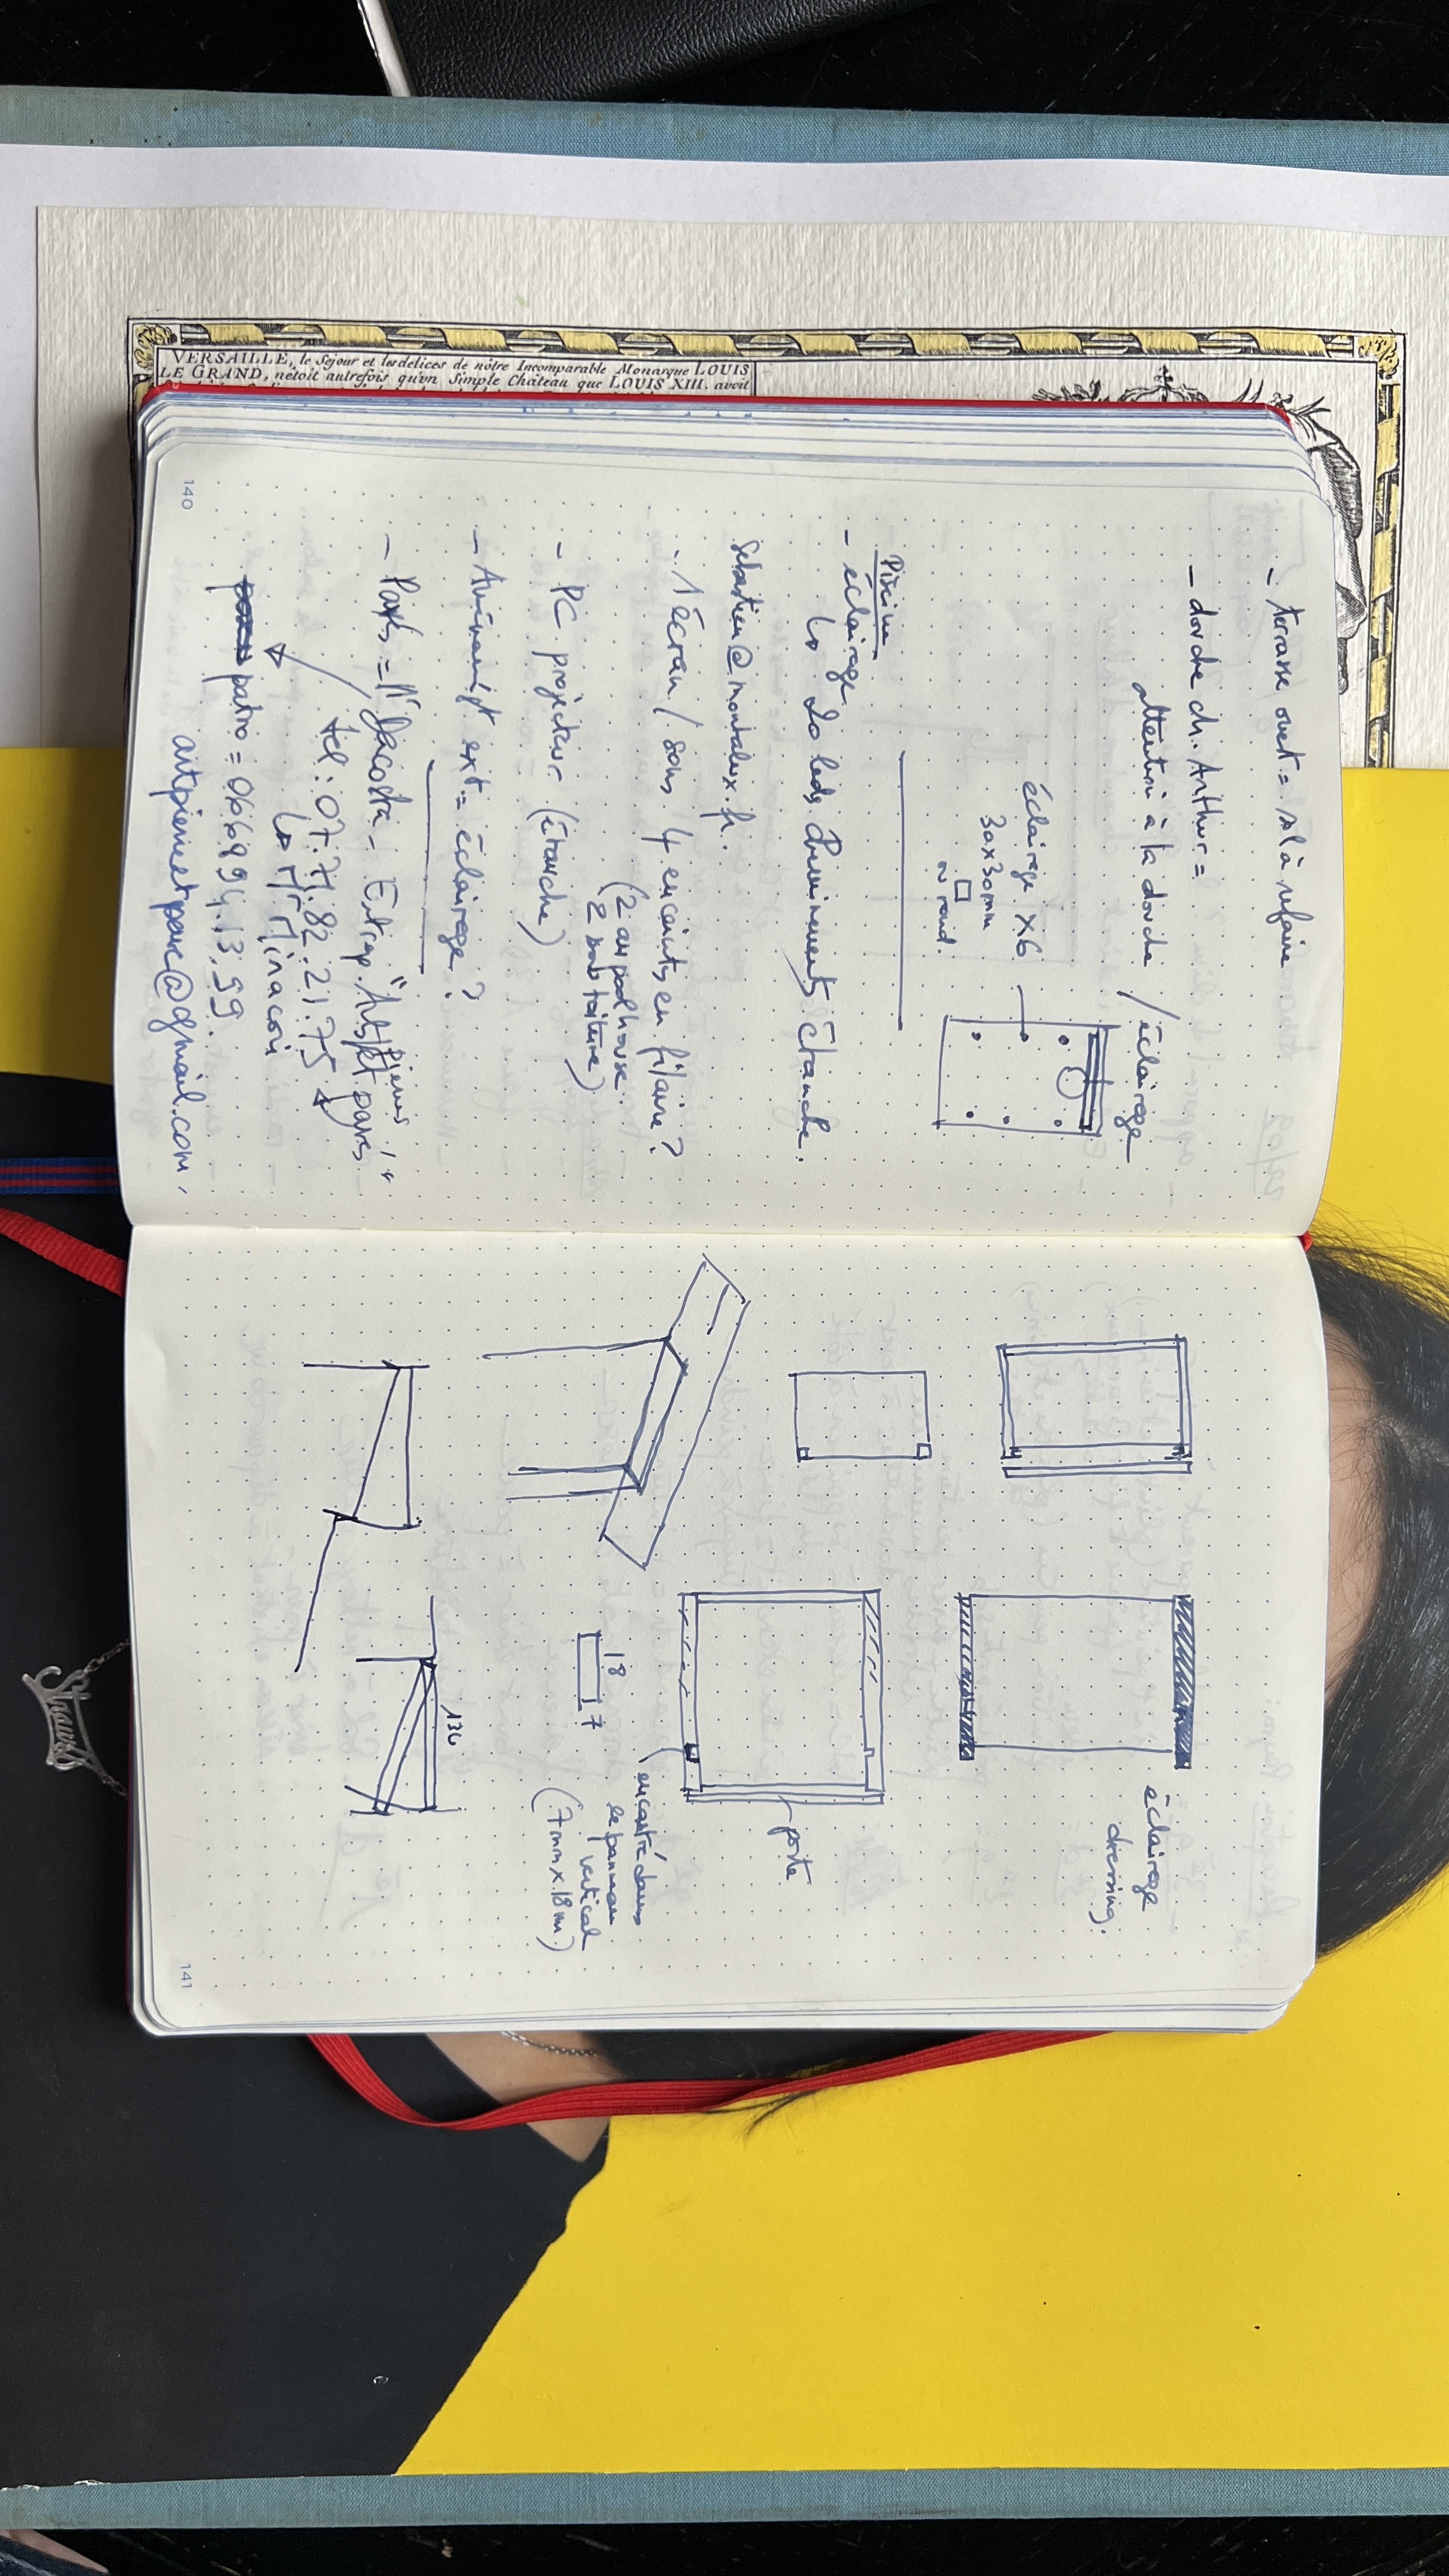 VERSAILLE, le Sejour et les delices de nôtre Incomparable Monarque LOUIS
LE GRAND, n'etoit autrefois qu'vn Simple Château que LOUIS XIII. avoit
- terrasse ouest = sol à refaire
- douche ch. Arthur =
attention à la douche / éclairage
éclairage x6
30x30mm
□
rond.
Piscine
- éclairage
↳ 20 leds étanche.
sebastien@montalux.fr.
- 1 écran / sono 4 enceintes en filaire?
(2 au pool house
2 sous toiture)
- PC projecteur (étanche)
- ext = éclairage?
- = Mr Dacosta - Entrep. "Art pierres et parcs"
tel: 07.71.82.21.75
↳ Mr Minacori
patio = 066894.13.99.
artpierreetparc@gmail.com
140
éclairage
dressing.
porte
encastré dans
le panneau
vertical
(7mm x 18m)
18
7
130
141
Shanus